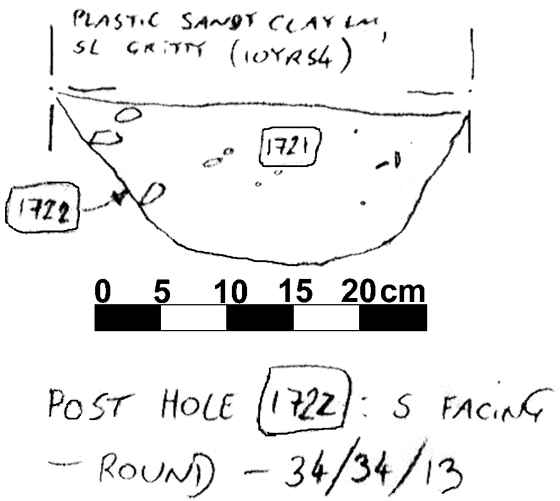 PLASTIC SANDY CLAY LM,
SL GRITTY (10YR54)
1721
1722
0 5 10 15 20 cm
POST HOLE 1722 : S FACING
- ROUND - 34/34/13